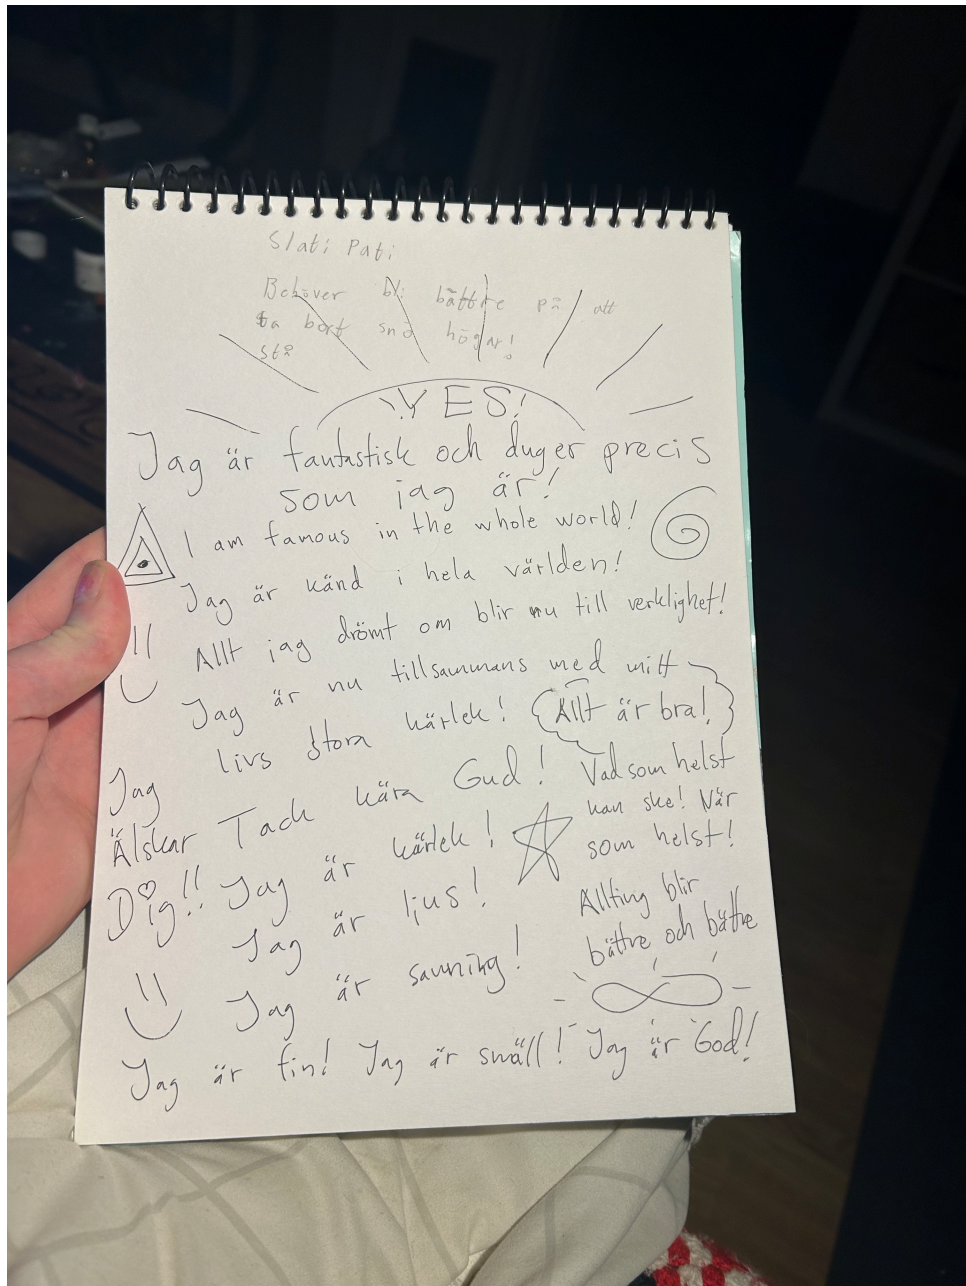 Slati Pati
Behöver bli bättre på att
ta bort snö högar!
stå
YES!
Jag är fantastisk och duger precis
som jag är!
I am famous in the whole world!
Jag är känd i hela världen!
Allt jag drömt om blir nu till verklighet!
Jag är nu tillsammans med mitt
livs stora kärlek!
Allt är bra!
Jag
Älskar
Dig!!
Tack kära Gud!
Vad som helst
kan ske! När
som helst!
Jag är kärlek!
Jag är ljus!
Allting blir
bättre och bättre
Jag är sanning!
Jag är fin! Jag är snäll! Jag är God!